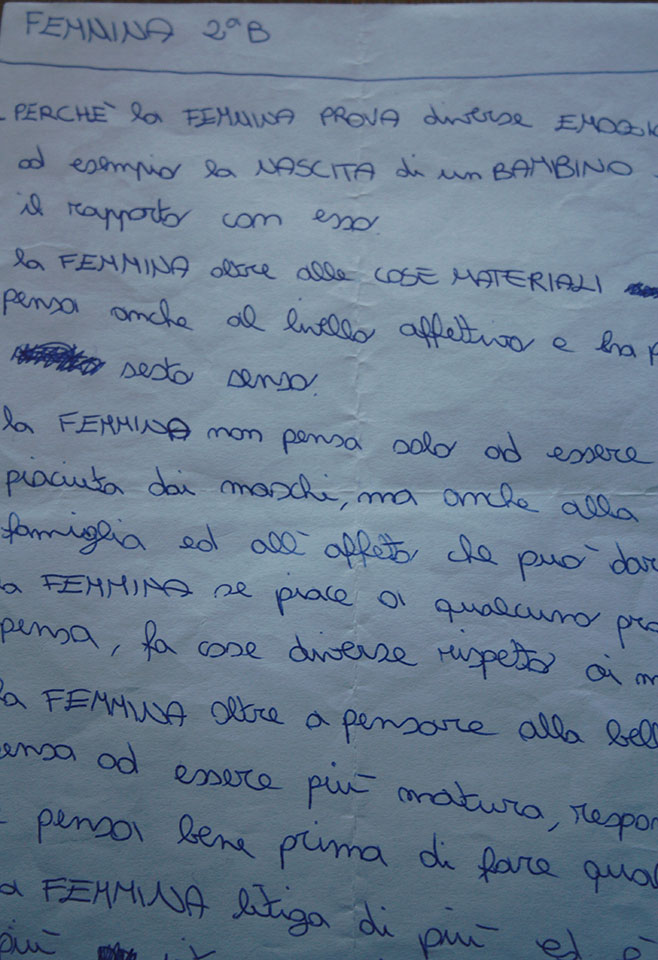 FEMMINA 2ªB
- PERCHÈ la FEMMINA PROVA diverse EMOZIO
ad esempio la NASCITA di un BAMBINO
il rapporto con esso.
la FEMMINA oltre alle COSE MATERIALI
pensa anche al livello affettivo e ha
sesto senso.
la FEMMINA non pensa solo ad essere
piaciuta dai maschi, ma anche alla
famiglia ed all'affetto che può dar
a FEMMINA se piace a qualcuno pro
pensa, fa cose diverse rispetto ai m
la FEMMINA oltre a pensare alla bell
ensa ad essere più matura, respon
pensa bene prima di fare qual
a FEMMINA litiga di più ed è
più